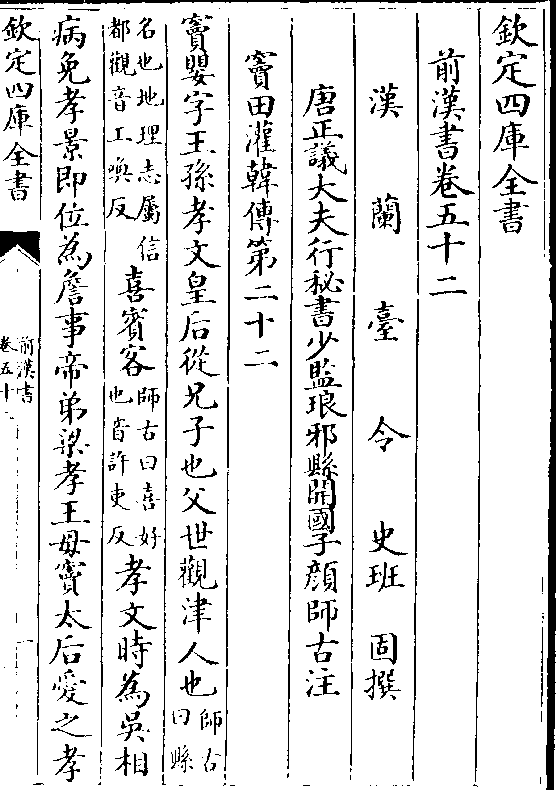 欽定四庫全書
前漢書卷五十二
漢蘭臺令史班固撰
唐正議大夫行秘書少監琅邪縣開國子顔師古注
竇田灌韓傳第二十二
竇嬰字王孫孝文皇后從兄子也父世觀津人也師古曰縣
名也地理志屬信都觀音工喚反喜賓客師古曰喜好也音許吏反孝文時為吳相
病免孝景即位為詹事帝弟梁孝王母竇太后愛之孝
欽定四庫全書
前漢書
卷五十二
一